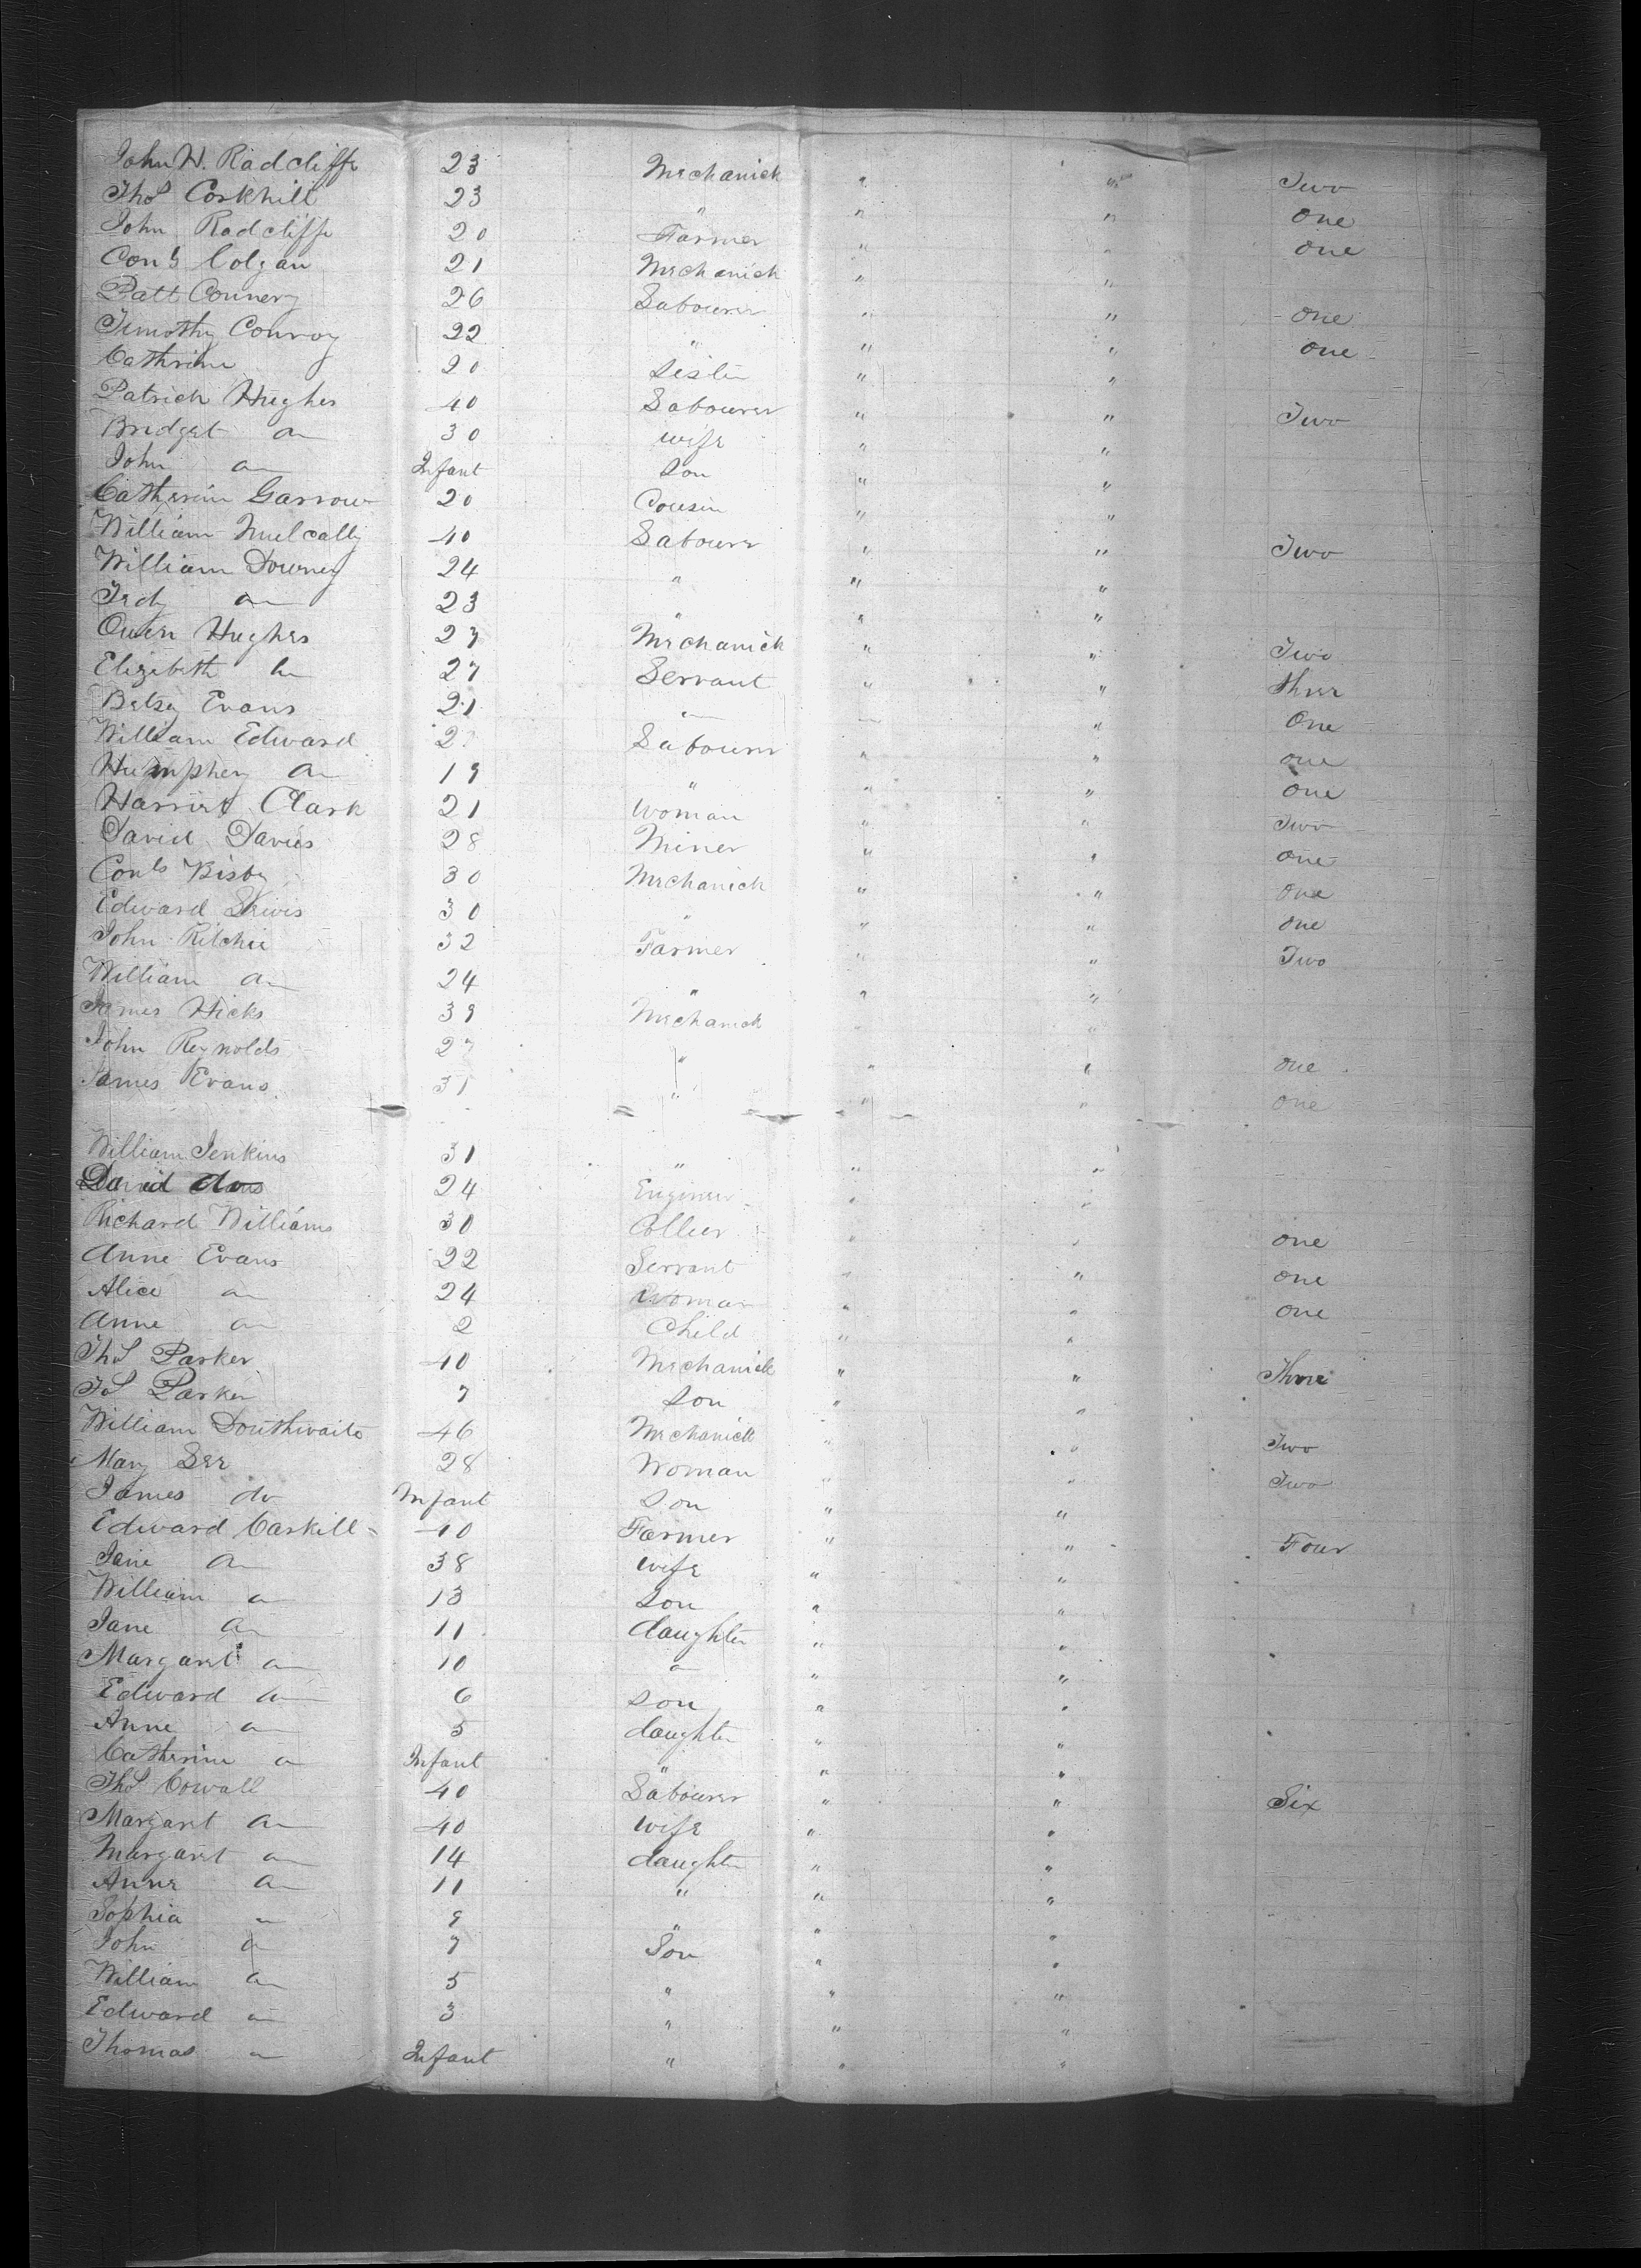 John H. Radcliffe 23 Mechanick " " Two
Thos Corkhill 23 " " " one
John Radcliffe 20 Farmer " " one
Cons Colgan 21 Mechanick " "
Patt Connery 26 Labourer " " one
Timothy Conroy 22 " " " one
Cathrine 20 Sister " "
Patrick Hughes 40 Labourer " " Two
Bridget do 30 wife " "
John do Infant Son " "
Catherine Garrow 20 Cousin " "
William Mulcally 40 Labourer " " Two
William Downey 24 " " "
do 23 " " "
Owen Hughes 27 Mechanick " " Two
Elizebeth do 27 Servant " " three
Betsy Evans 21 " " " One
William Edward Labourer " " one
Humphery do 19 " " " one
Harriet Clark 21 Woman " " Two
David Davies 28 Miner " " one
Bisby 30 Mechanick " " one
Edward Lewis 30 " " " one
John Ritchie 32 Farmer " " Two
William do 24 " " "
James Hicks 39 Mechanick " "
John Reynolds 27 " " " one
James Evans 31 " " " one
William Jenkins 31 " " "
David 24 Engineer " "
Richard Williams 30 Collier " " one
Anne Evans 22 Servant " " one
Alice do 24 Woman " " one
Anne do 2 Child " "
Thos Parker 40 Mechanick " " Three
Parker 7 Son " "
William Douthwaite 46 Mechanick " " Two
Mary Lee 28 Woman " " Two
James do Infant Son " "
Edward Caskill 40 Farmer " " Four
Jane do 38 wife " "
William do 13 Son " "
Jane do 11 daughter " "
Margaret do 10 do " "
Edward do 6 Son " "
Anne do 5 daughter " "
Catherine do Infant " " "
Thos Cowall 40 Labourer " " Six
Margaret do 40 wife " "
Margaret do 14 daughter " "
Anne do 11 " " "
Sophia do 9 " " "
John do 7 Son " "
William do 5 " " "
Edward do 3 " " "
Thomas do Infant " " "